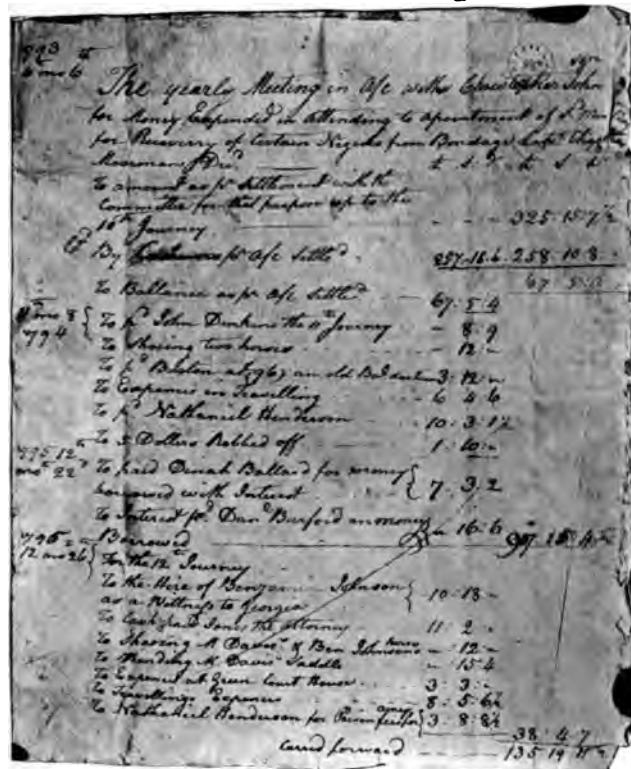 793
6 mo 6th
The yearly Meeting in A/c with Christopher John
for Money Expended in Attending to Apointment of Sd Me
for Recovery of Certain Negroes from Bondage
£ s d £ s d
To amount as pr Settlement with the
Committee for that purpose up to the
10th Journey - - - 325.15.7½
By pr A/c Settled 257.18.6. 258.10.8
67 5
To Ballance as pr A/c Settled 67.5.4
mo 8
794
To pd John the 11th Journey - 8.9
To Shoeing two horses - 12 -
To pd an old 3.12 -
To Expences in Travelling 6 4 6
To pd Nathaniel Henderson 10.3.1½
To 5 Dollars Robbed off 1.10 -
795 12th
mo 22d
To paid Dinah Ballard for money
borrowed with Interest 7.3.2
To Interest pd Danl Barford on money
Borrowed - 16.6 97.15.4
795
12 mo 26
For the 12th Journey
To the Hire of Benjamin Johnson
as a Wittness to Georgia 10.18 -
To Cash paid Jones the attorney 11 2 -
To Shoeing M Davis & Ben Johnsons horses - 12 -
To Mending M Davis Saddle - 15 4
To Expences at Green Court House 3.3 -
To Travelling Expences 8.5.6½
To Nathaniel Henderson for 3.8.8½
38.4.7
Carred forward 135.19.11